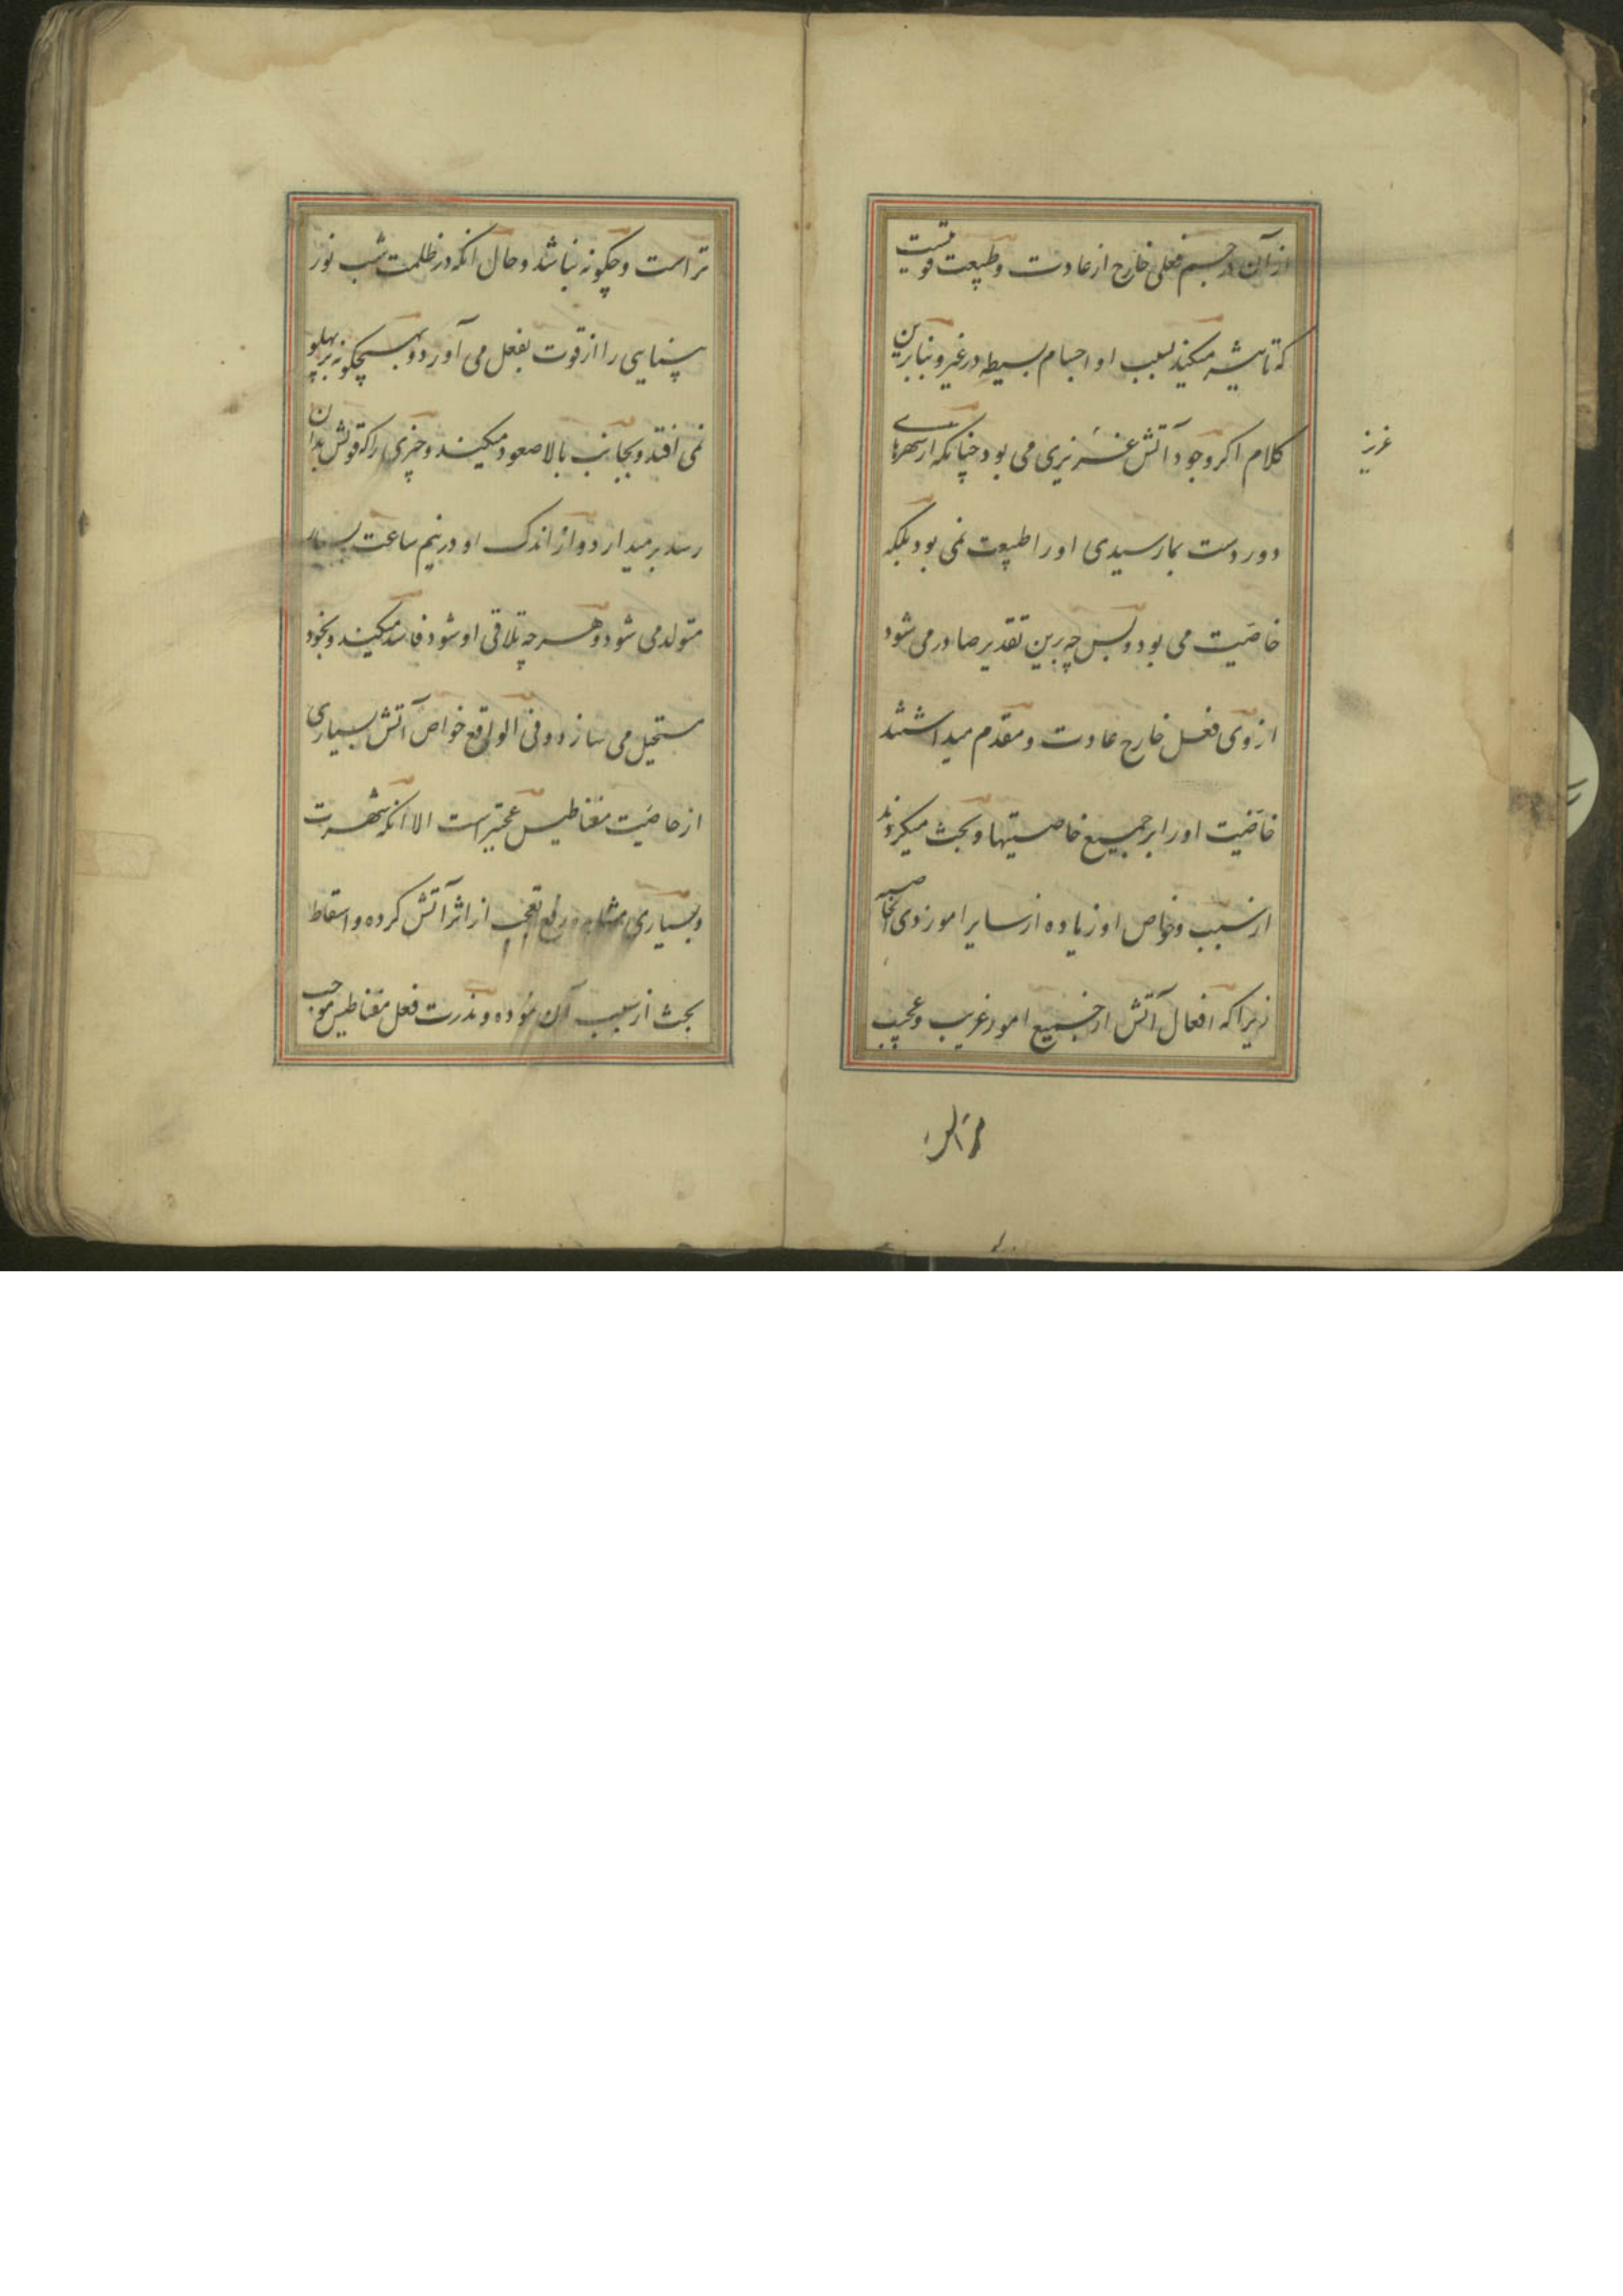 از آن در جسم فعلی خارج از عادت و طبیعت قویست
که تاثیر میکند بسبب او اجسام بسیطه در غیر و بنابرین
کلام اکر وجود آتش غریزی می بود چنانکه از شهرهای
عزیز
دور دست بما رسیدی او را طبیعت نمی بود بلکه
خاصیت می بود و بس چه برین تقدیر صادر می شود
از وی فعل خارج عادت و مقدم میداشتند
خاصیت او را بر جمیع خاصیتها و بحث میکردند
از سبب و خواص او زیاده از سایر امور ذوی الخاصیه
زیرا که افعال آتش از جمیع امور غریب و عجیب
تر است
تر است و چکونه نباشد و حال انکه در ظلمت شب نور
بینایی را از قوت بفعل می آورد و بهیچکونه بر پهلو
نمی افتد و بجانب بالا صعود میکند و چیزی را که قوتش بدان
رسد بر میدارد و از اندک او در نیم ساعت بسیار
متولد می شود و هر چه بتلاقی او شود فاسد میکند و بخود
مستحیل می سازد و فی الواقع خواص آتش بسیاری
از خاصیت مغناطیس عجیبتر است الا انکه شهرت
و بسیاری مشاهده رفع تعجب از اثر آتش کرده و اسقاط
بحث از سبب آن نموده و ندرت فعل مغناطیس موجب